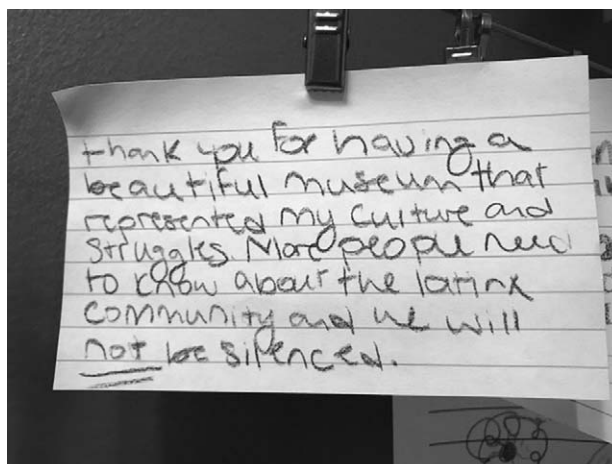 thank you for having a
beautiful museum that
represented my culture and
struggles. More people need
to know about the latinx
community and we will
not be silenced.